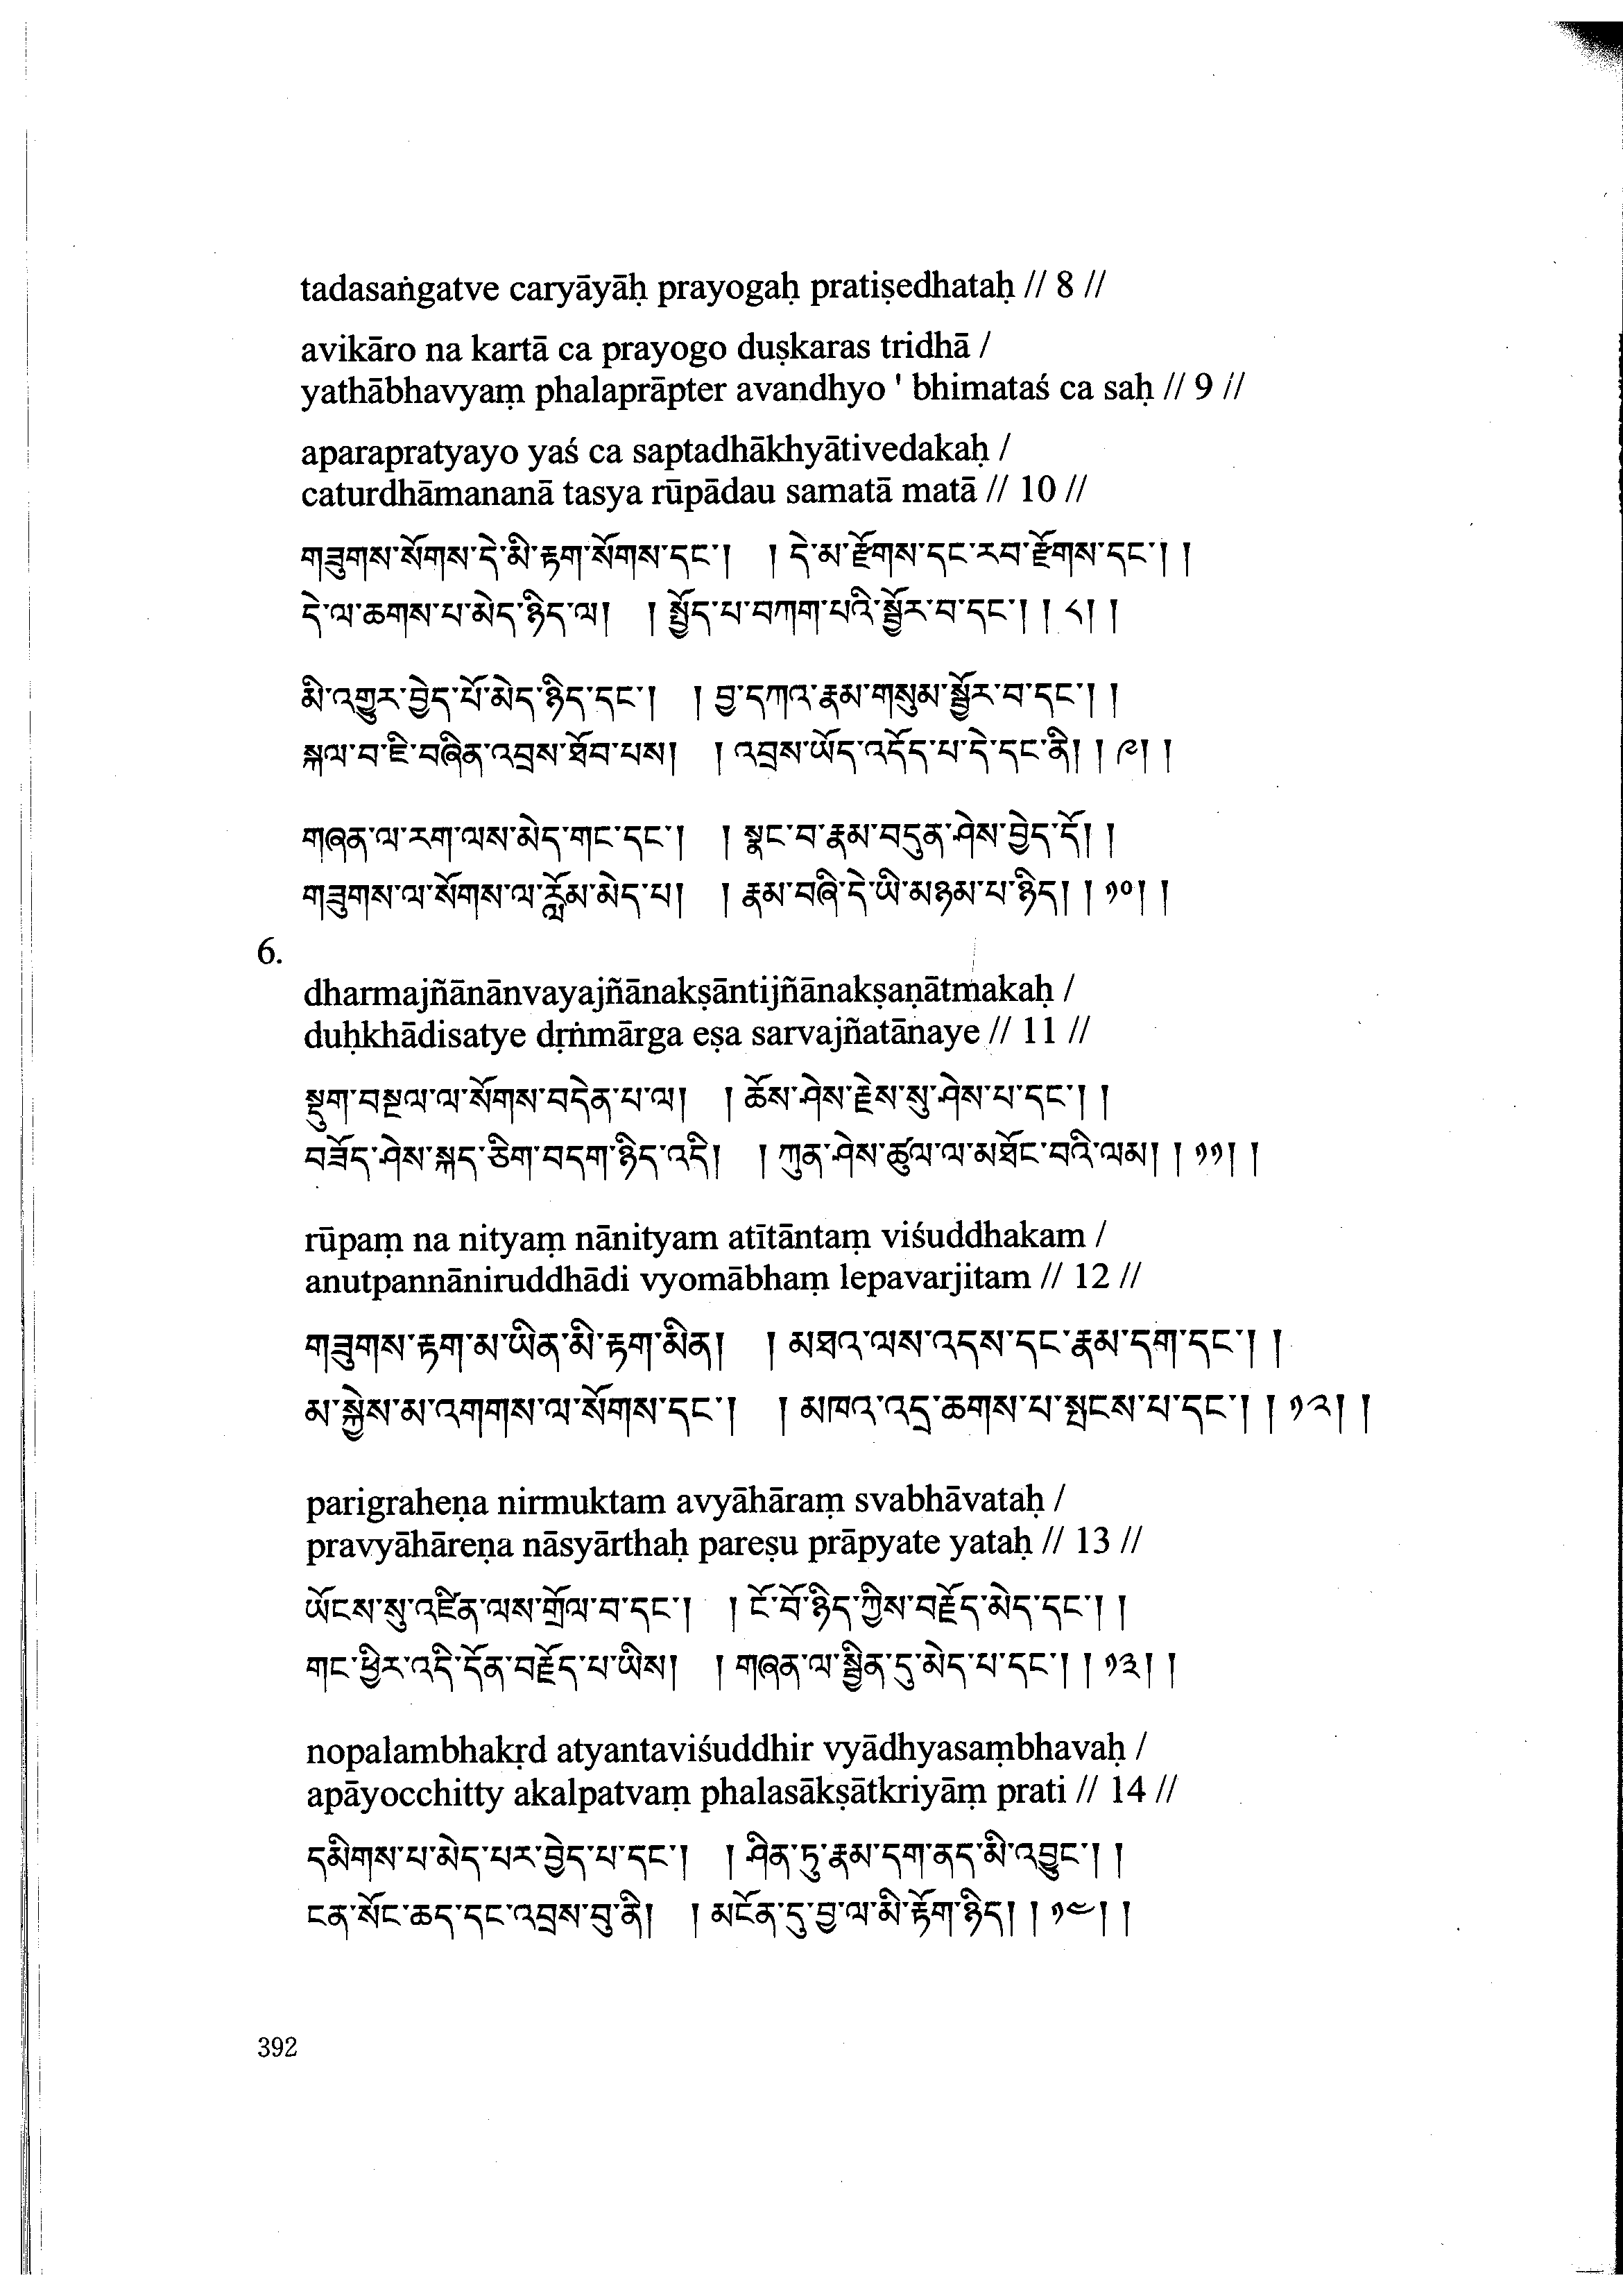 tadasaṅgatve caryāyāḥ prayogaḥ pratiṣedhataḥ // 8 //
avikāro na kartā ca prayogo duṣkaras tridhā /
yathābhavyaṃ phalaprāpter avandhyo ' bhimataś ca saḥ // 9 //
aparapratyayo yaś ca saptadhākhyātivedakaḥ /
caturdhāmananā tasya rūpādau samatā matā // 10 //
གཟུགས་སོགས་དེ་མི་རྟག་སོགས་དང་། ། དེ་མ་རྫོགས་དང་རབ་རྫོགས་དང་། །
དེ་ལ་ཆགས་པ་མེད་ཉིད་ལ། ། སྤྱོད་པ་བཀག་པའི་སྦྱོར་བ་དང་། ། ༨། །
མི་འགྱུར་བྱེད་པོ་མེད་ཉིད་དང་། ། བྱ་དཀའ་རྣམ་གསུམ་སྦྱོར་བ་དང་། །
སྐལ་བ་ཇི་བཞིན་འབྲས་ཐོབ་པས། ། འབྲས་ཡོད་འདོད་པ་དེ་དང་ནི། ། ༩། །
གཞན་ལ་རག་ལས་མེད་གང་དང་། ། སྣང་བ་རྣམ་བདུན་ཤེས་བྱེད་དོ། །
གཟུགས་ལ་སོགས་ལ་རློམ་མེད་པ། ། རྣམ་བཞི་དེ་ཡི་མཉམ་པ་ཉིད། ། ༡༠། །
6.
dharmajñānānvayajñānakṣāntijñānakṣaṇātmakaḥ /
duḥkhādisatye dṛṅmārga eṣa sarvajñatānaye // 11 //
སྡུག་བསྔལ་ལ་སོགས་བདེན་པ་ལ། ། ཆོས་ཤེས་རྗེས་སུ་ཤེས་པ་དང་། །
བཟོད་ཤེས་སྐད་ཅིག་བདག་ཉིད་འདི། ། ཀུན་ཤེས་ཚུལ་ལ་མཐོང་བའི་ལམ། ། ༡༡། །
rūpaṃ na nityaṃ nānityam atītāntaṃ viśuddhakam /
anutpannāniruddhādi vyomābhaṃ lepavarjitam // 12 //
གཟུགས་རྟག་མ་ཡིན་མི་རྟག་མིན། ། མཐའ་ལས་འདས་དང་རྣམ་དག་དང་། །
མ་སྐྱེས་མ་འགགས་ལ་སོགས་དང་། ། མཁའ་འདྲ་ཆགས་པ་སྤངས་པ་དང་། ། ༡༢། །
parigraheṇa nirmuktam avyāhāraṃ svabhāvataḥ /
pravyāhāreṇa nāsyārthaḥ pareṣu prāpyate yataḥ // 13 //
ཡོངས་སུ་འཛིན་ལས་གྲོལ་བ་དང་། ། ངོ་བོ་ཉིད་ཀྱིས་བརྗོད་མེད་དང་། །
གང་ཕྱིར་འདི་དོན་བརྗོད་པ་ཡིས། ། གཞན་ལ་སྦྱིན་དུ་མེད་པ་དང་། ། ༡༣། །
nopalambhakṛd atyantaviśuddhir vyādhyasaṃbhavaḥ /
apāyocchitty akalpatvaṃ phalasākṣātkriyāṃ prati // 14 //
དམིགས་པ་མེད་པར་བྱེད་པ་དང་། ། ཤིན་ཏུ་རྣམ་དག་ནད་མི་འབྱུང་། །
ངན་སོང་ཆད་དང་འབྲས་བུ་ནི། ། མངོན་དུ་བྱ་ལ་མི་རྟོག་ཉིད། ། ༡༤། །
392